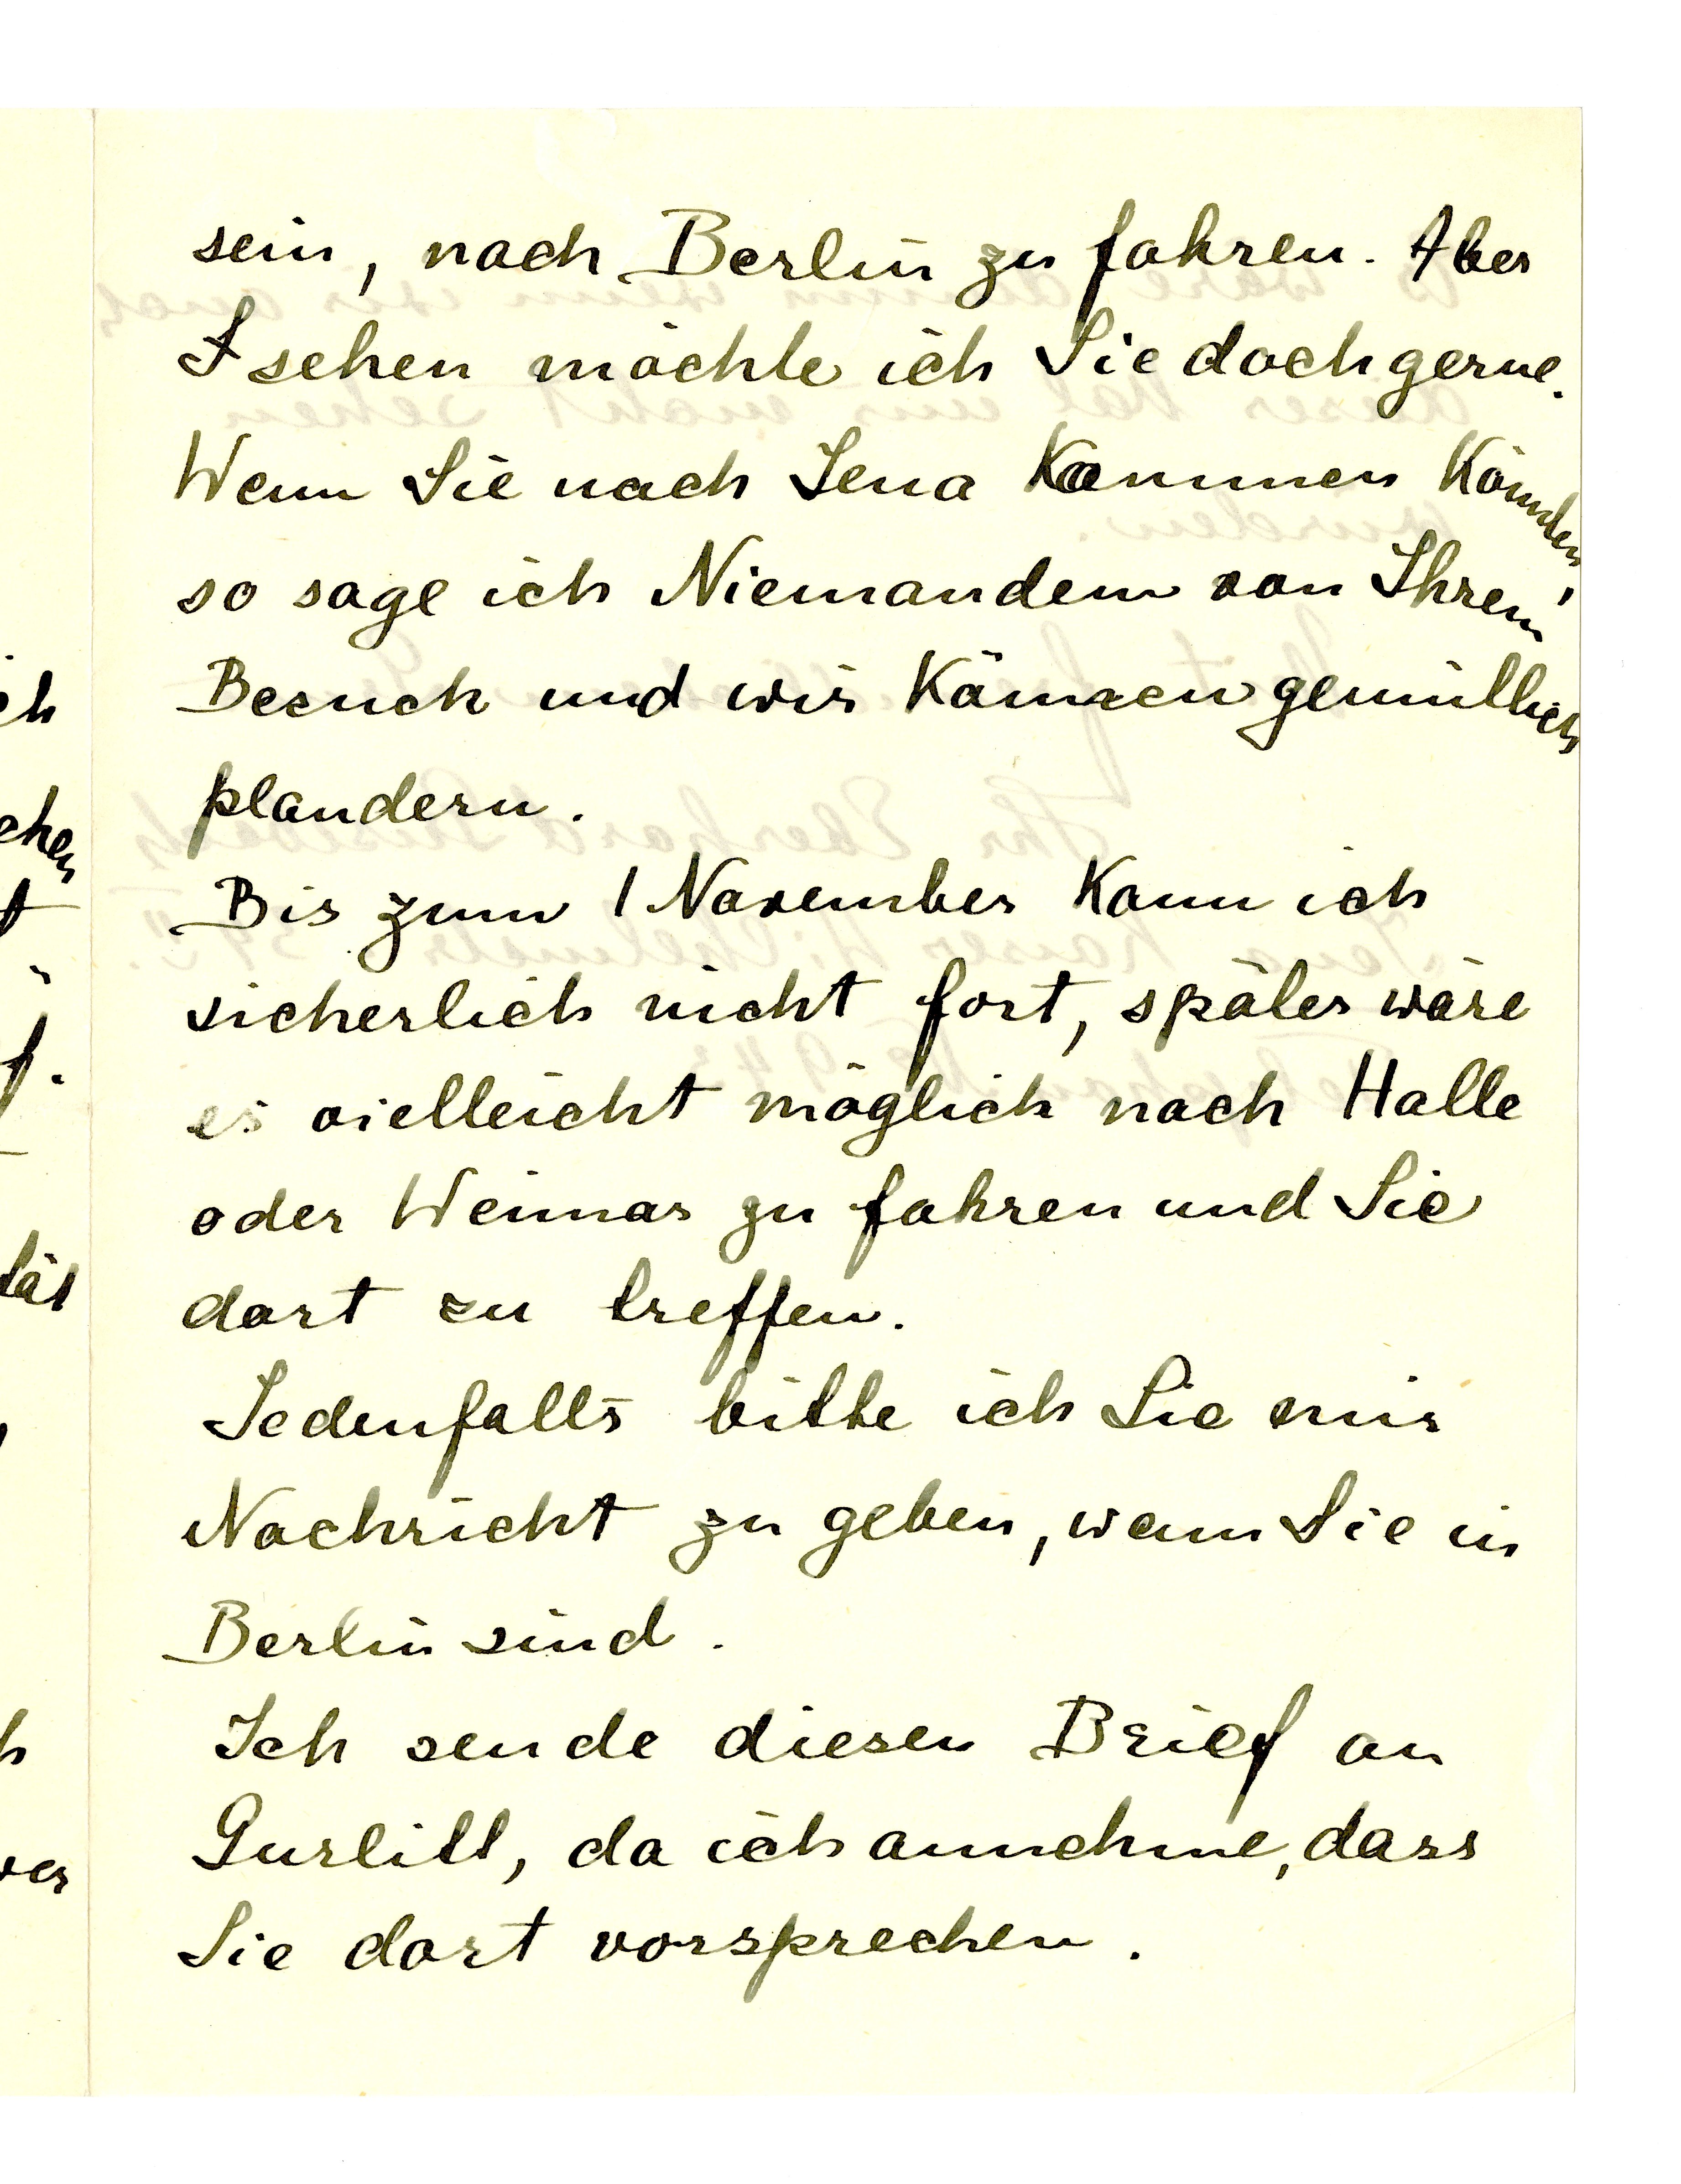 sein, nach Berlin zu fahren. Aber
sehen möchte ich Sie doch gerne.
Wenn Sie nach Jena kommen könnten,
so sage ich Niemandem von Ihrem
Besuch und wir können gemütlich
plaudern.
Bis zum 1 November kann ich
sicherlich nicht fort, später wäre
es vielleicht möglich nach Halle
oder Weimar zu fahren und Sie
dort zu treffen.
Jedenfalls bitte ich Sie mir
Nachricht zu geben, wann Sie in
Berlin sind.
Ich sende diesen Brief an
Gurlitt, da ich annehme, dass
Sie dort vorsprechen.